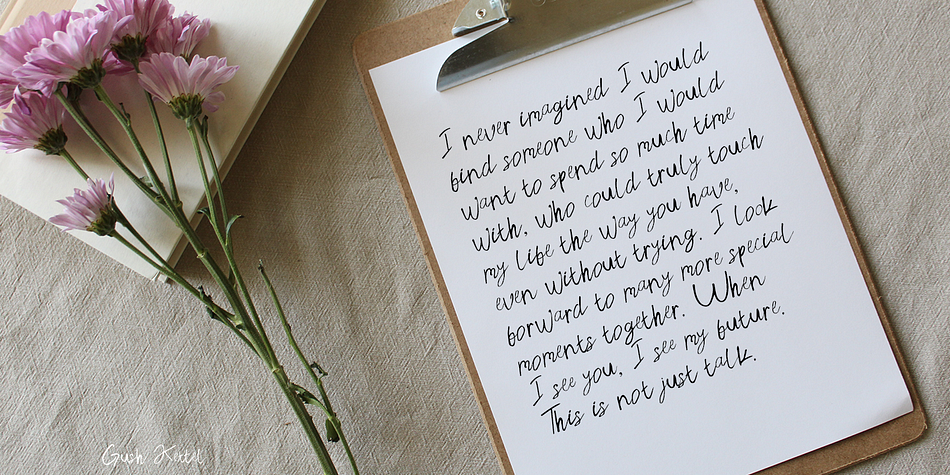 I never imagined I would
find someone who I would
want to spend so much time
with, who could truly touch
my life the way you have,
even without trying. I look
forward to many more special
moments together. When
I see you, I see my future.
This is not just talk.